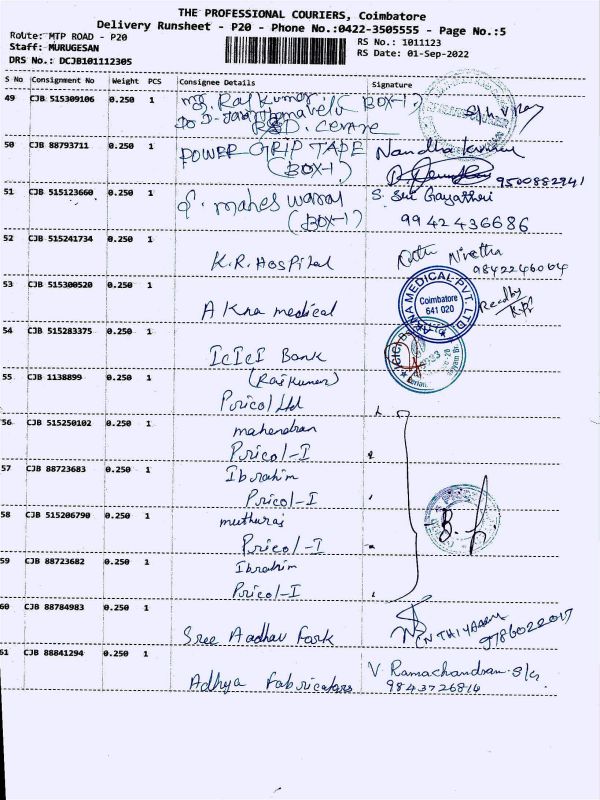 THE PROFESSIONAL COURIERS, Coimbatore
Delivery Runsheet - P20 - Phone No.:0422-3505555 - Page No.:5
Route: MTP ROAD - P20
RS No.: 1011123
Staff: MURUGESAN
RS Date: 01-Sep-2022
DRS No.: DCJB101112305
S No Consignment No Weight PCS Consignee Details Signature
49 CJB 515309106 0.250 1 Raj Kumar (BOX-1)
R&D. Centre
50 CJB 88793711 0.250 1 POWER GRIP TAPE Nandha Kumar
(BOX-1) 9500882941
51 CJB 515123660 0.250 1 maheswaran S. Sri Gayathri
(BOX-1) 9942436686
52 CJB 515241734 0.250 1 K.R. Hospital Nivetha
9842246064
53 CJB 515300520 0.250 1 Akna medical
AKNA MEDICAL PVT. LTD.
Coimbatore
641 020
Recd by
54 CJB 515283375 0.250 1 IcIcI Bank
(Rajkumar)
55 CJB 1138899 0.250 1 Pricol Ltd
56 CJB 515250102 0.250 1 mahendran
Pricol-I
57 CJB 88723683 0.250 1 Ibrahim
Pricol-I
58 CJB 515206790 0.250 1 muthuraj
Pricol-I
59 CJB 88723682 0.250 1 Ibrahim
Pricol-I
60 CJB 88784983 0.250 1 Sree Aadhav Fork
9786022017
61 CJB 88841294 0.250 1 Adhya Fabricators V. Ramachandran
9843726814